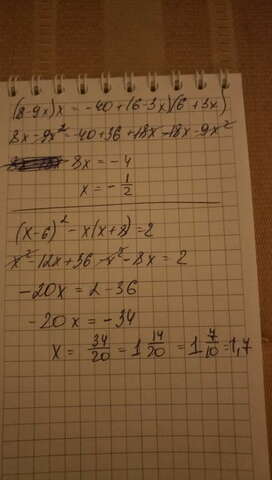 (8-9x)x = -40+(6-3x)(6+3x)
8x-9x² = -40+36+18x-18x-9x²
8x = -4
x = -1/2
(x-6)² - x(x+8) = 2
x² - 12x + 36 - x² - 8x = 2
-20x = 2 - 36
-20x = -34
x = 34/20 = 1 14/20 = 1 7/10 = 1,7